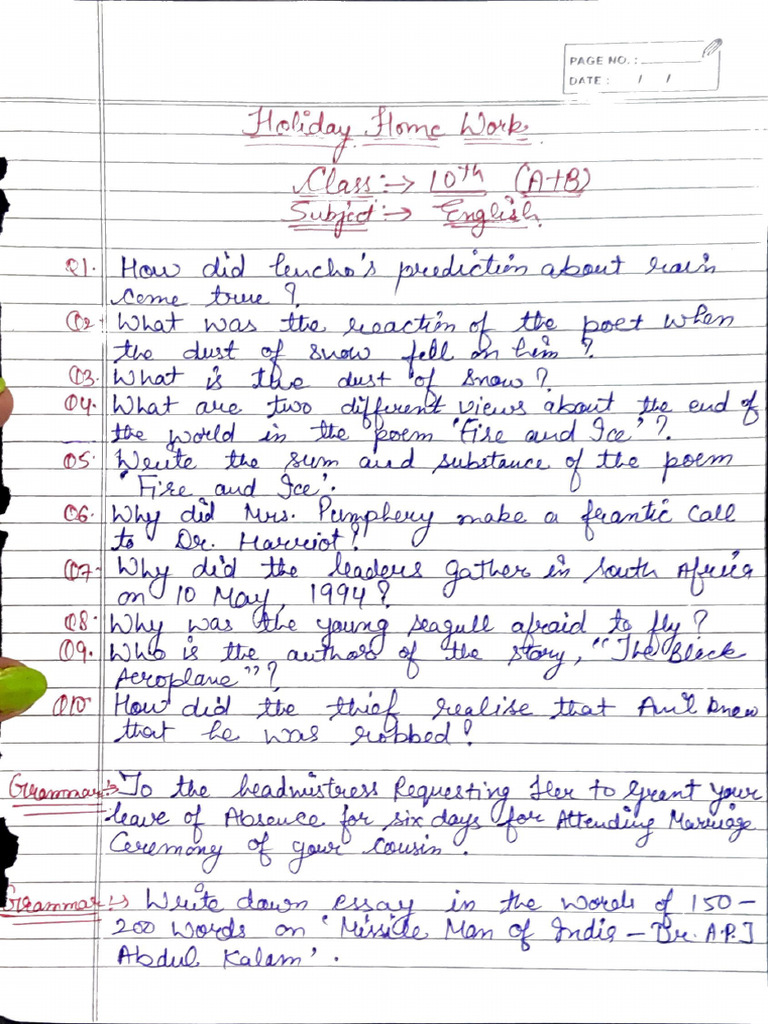 PAGE NO. :
DATE : / /
Holiday Home Work
Class :→ 10th (A+B)
Subject :→ English.
Q1. How did lencho's prediction about rain
come true ?
Q2. What was the reaction of the poet when
the dust of snow fell on him ?
Q3. What is the dust of snow ?
Q4. What are two different views about the end of
the world in the poem 'Fire and Ice' ?
Q5. Write the sum and substance of the poem
'Fire and Ice'.
Q6. Why did Mrs. Pumphery make a frantic call
to Dr. Harriot ?
Q7. Why did the leaders gather in South Africa
on 10 May, 1994 ?
Q8. Why was the young seagull afraid to fly ?
Q9. Who is the author of the story, "The Black
Aeroplane" ?
Q10. How did the thief realise that Anil knew
that he was robbed ?
Grammar :→ To the headmistress Requesting Her to Grant Your
leave of Absence for six days for Attending Marriage
Ceremony of your Cousin .
Grammar :→ Write down essay in the words of 150-
200 words on 'Missile Man of India - Dr. A.P.J
Abdul Kalam' .